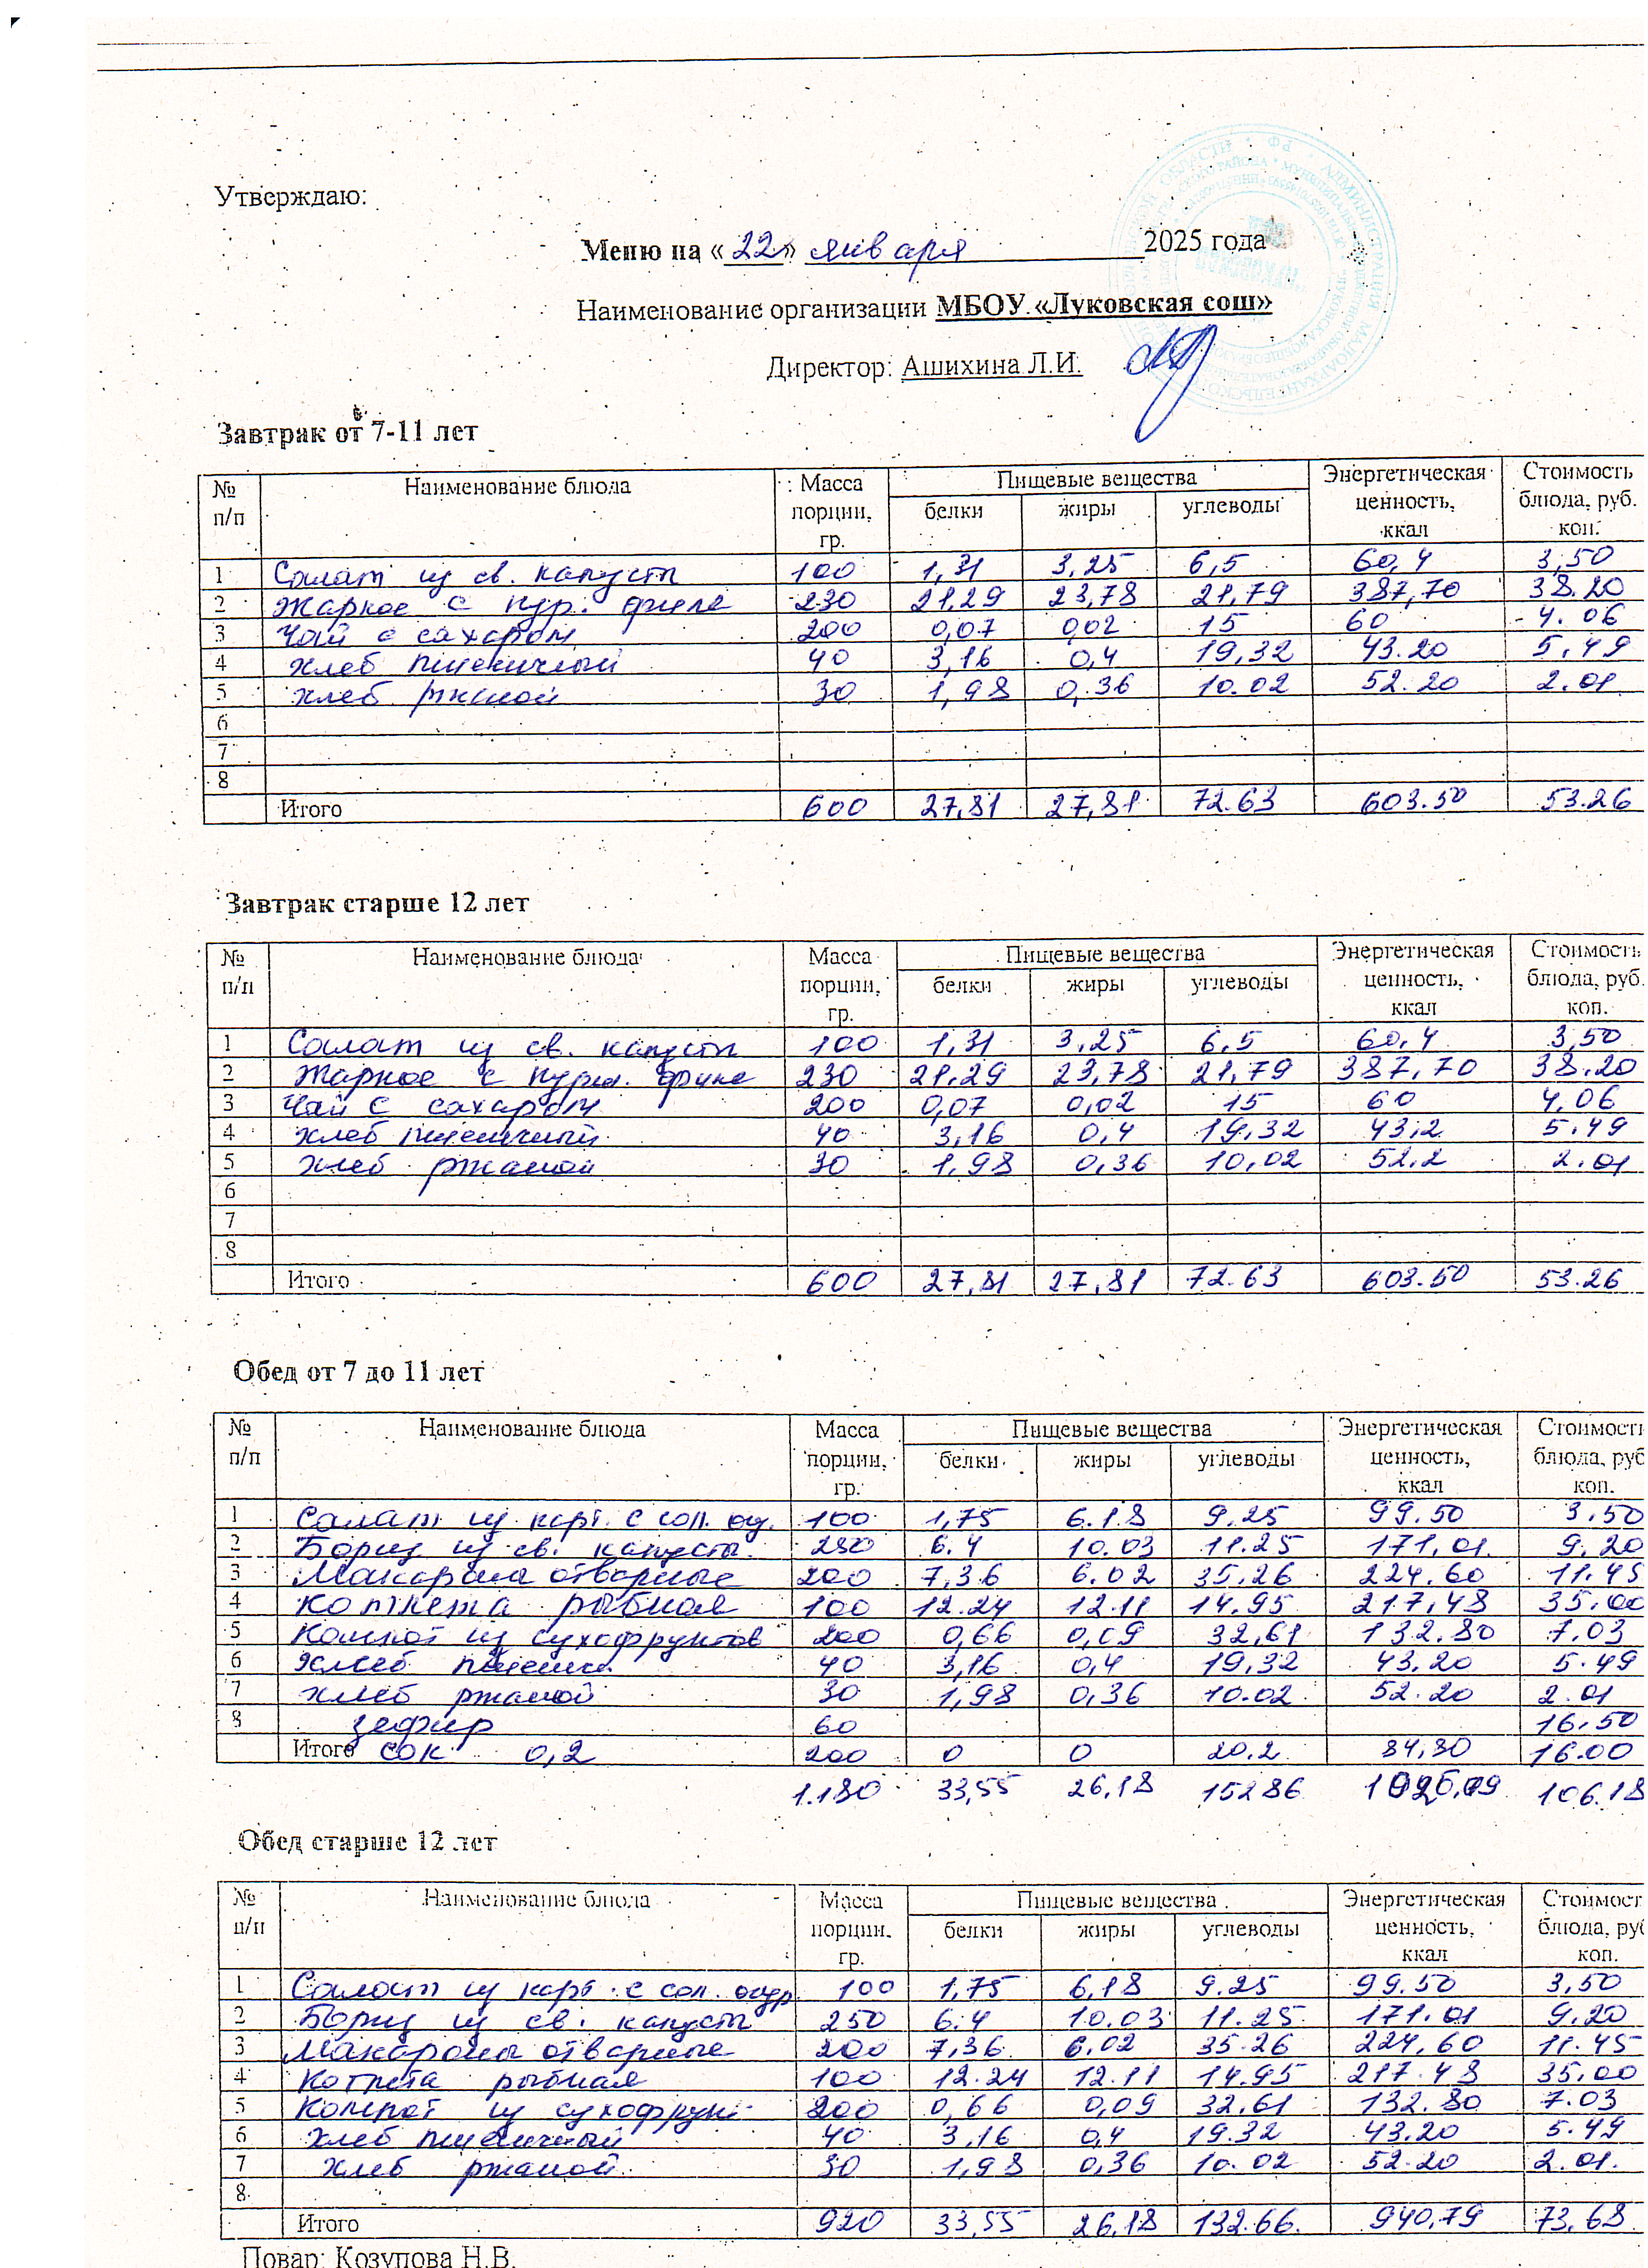 Утверждаю:
Меню на «22» января 2025 года
Наименование организации МБОУ «Луковская сош»
Директор: Ашихина Л.И.
Завтрак от 7-11 лет
№ п/п Наименование блюда Масса порции, гр. Пищевые вещества белки жиры углеводы Энергетическая ценность, ккал Стоимость блюда, руб. коп.
1 Салат из св. капусты 100 1,31 3,25 6,5 60,4 3,50
2 Жаркое с кур. филе 230 21,29 23,78 21,79 387,70 38.20
3 Чай с сахаром 200 0,07 0,02 15 60 4.06
4 хлеб пшеничный 40 3,16 0,4 19,32 43.20 5,49
5 хлеб ржаной 30 1,98 0,36 10.02 52.20 2.01
6
7
8
Итого 600 27,81 27,81 72.63 603.50 53.26
Завтрак старше 12 лет
№ п/п Наименование блюда Масса порции, гр. Пищевые вещества белки жиры углеводы Энергетическая ценность, ккал Стоимость блюда, руб. коп.
1 Салат из св. капусты 100 1,31 3,25 6,5 60,4 3,50
2 Жаркое с кури. филе 230 21.29 23,78 21,79 387,70 38.20
3 Чай с сахаром 200 0,07 0,02 15 60 4,06
4 хлеб пшеничный 40 3,16 0,4 19,32 43,2 5.49
5 хлеб ржаной 30 1,98 0,36 10,02 52,2 2.01
6
7
8
Итого 600 27,81 27,81 72.63 603.50 53.26
Обед от 7 до 11 лет
№ п/п Наименование блюда Масса порции, гр. Пищевые вещества белки жиры углеводы Энергетическая ценность, ккал Стоимост блюда, руб коп.
1 Салат из карт. с сол. ог. 100 1,75 6.18 9.25 99.50 3,50
2 Борщ из св. капусты 250 6.4 10.03 11.25 171,01 9,20
3 Макароны отварные 200 7,36 6.02 35,26 224,60 11.45
4 котлета рыбная 100 12.24 12.11 14.95 217,48 35.00
5 Компот из сухофруктов 200 0,66 0,09 32,61 132.80 7.03
6 хлеб пшенич. 40 3,16 0,4 19,32 43,20 5.49
7 хлеб ржаной 30 1,98 0,36 10.02 52.20 2.01
8 зефир 60 16,50
Итого сок 0,2 200 0 0 20.2 84,30 16.00
1.180 33,55 26,18 152 86 106.18
Обед старше 12 лет
№ п/п Наименование блюда Масса порции, гр. Пищевые вещества белки жиры углеводы Энергетическая ценность, ккал Стоимост блюда, ру коп.
1 Салат из карт. с сол. огур. 100 1,75 6,18 9.25 99.50 3,50
2 Борщ из св. капусты 250 6.4 10.03 11.25 171.01 9.20
3 Макароны отварные 200 7,36 6,02 35.26 224,60 11.45
4 Котлета рыбная 100 12.24 12.11 14.95 217.48 35,00
5 Компот из сухофрукт 200 0,66 0,09 32.61 132.80 7.03
6 хлеб пшеничный 40 3,16 0,4 19.32 43.20 5.49
7 хлеб ржаной 30 1,98 0,36 10.02 52.20 2.01.
8
Итого 920 33,55 26,18 132.66. 940,79 73,68
Повар: Козупова Н.В.